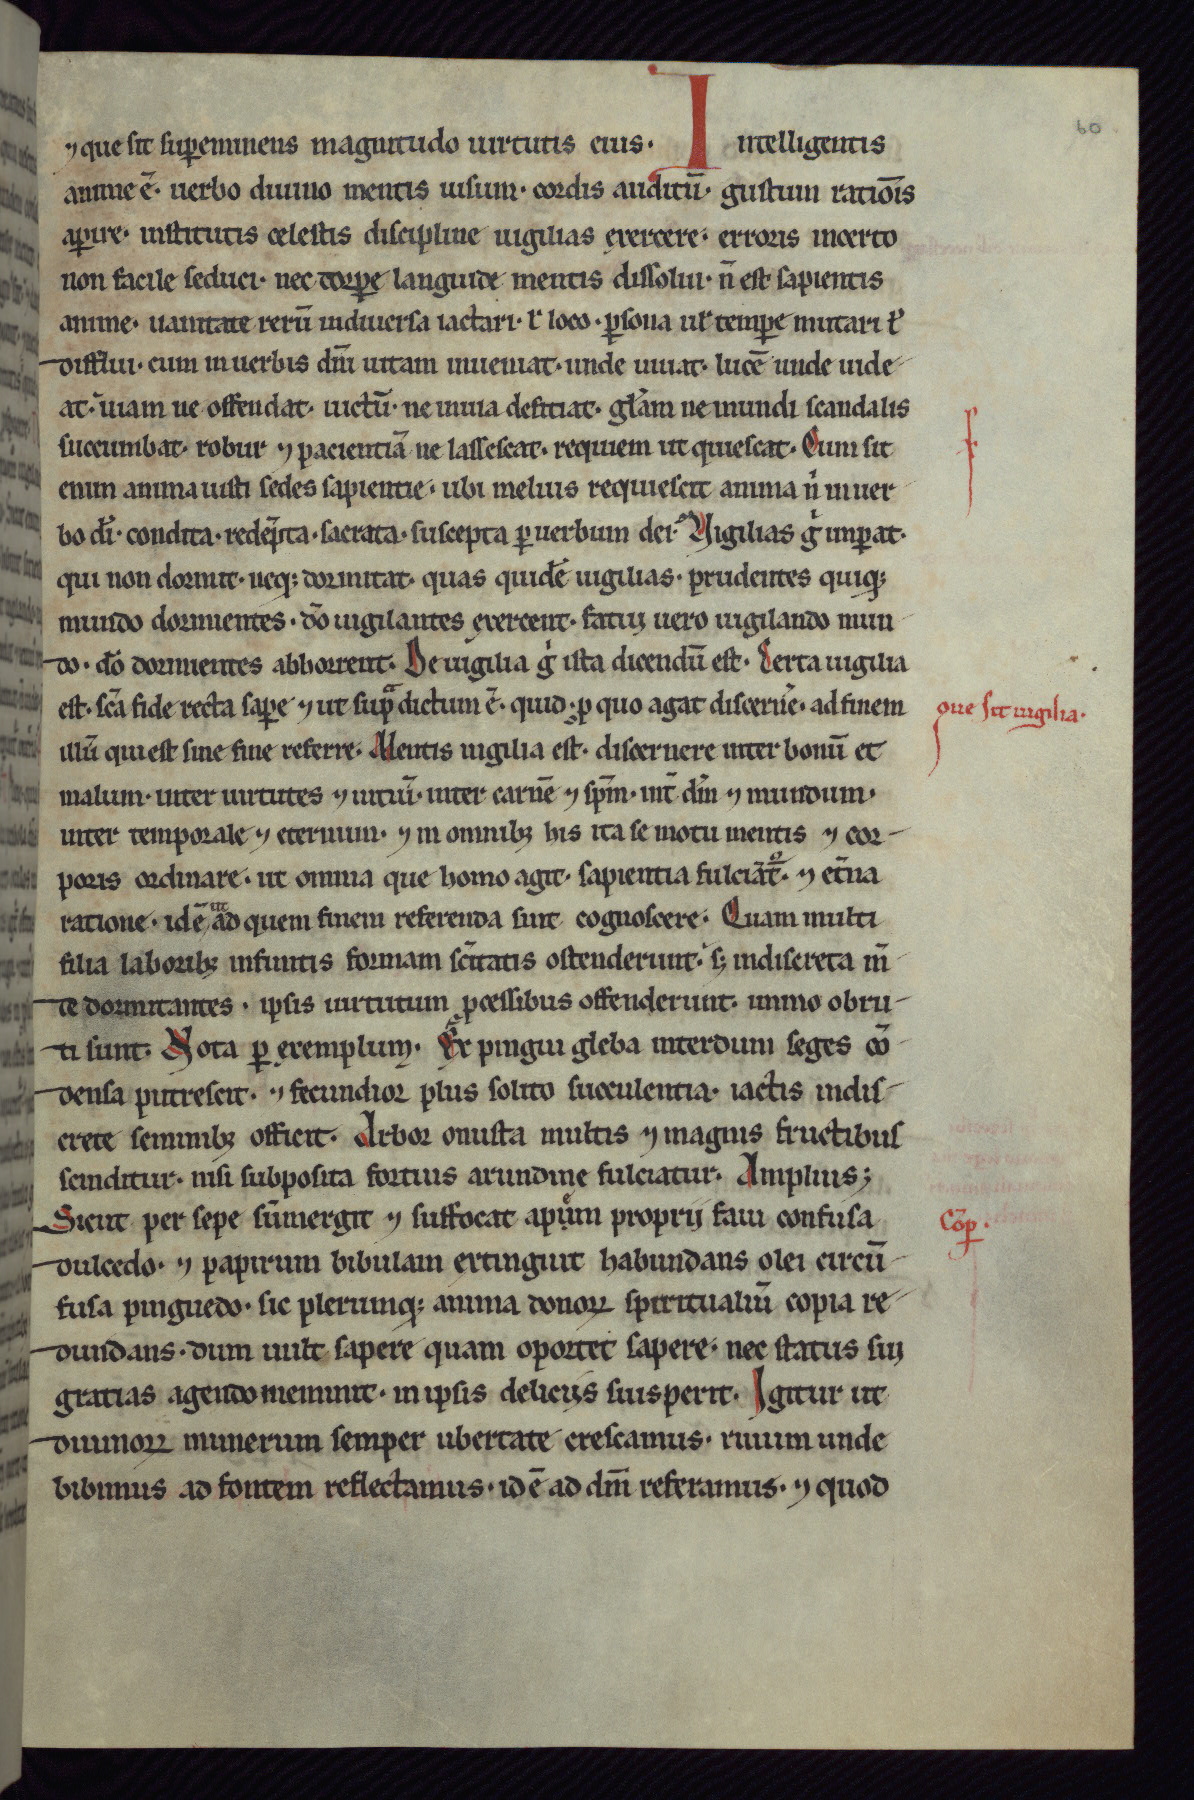 60
⁊ que sit sup̱eminens magnitudo uirtutis eius· Intelligentis
anime ē· uerbo diuino mentis uisum· cordis auditū· gustum ratiōis
ap̱ire· institutis celestis discipline uigilias exercere· erroris incerto
non facile seduci· nec torp̱e languide mentis dissolui· n̄ est sapientis
anime· uanitate rerū indiuersa iactari· ł loco· p̱sona uł temp̱e mutari ł
difflui· cum in uerbis dn̄i uitam inueniat· unde uiuat· lucē unde uide
at· uiam ne offendat· uictū· ne inuia deficiat· gl̄am ne mundi scandalis
succumbat· robur ⁊ pacientiā ne lassescat· requiem ut quiescat· Cum sit
enim anima iusti sedes sapientie· ubi melius requiescit anima n̄ inuer
bo dī· condita· redēpta· sacrata· suscepta p̱ uerbum dei· Uigilias g̊ imp̱at·
qui non dormit· neq; dormitat· quas quidē uigilias· prudentes quiq;
mundo dormientes· dō uigilantes exercent· fatui uero uigilando mun
do· dō dormientes abhorrent· De uigilia g̊ ista dicendū est· Certa uigilia
est· sc̄a fide recta sap̱e ⁊ ut sup̄ dictum ē· quid· p̱ quo agat discern̄e· ad finem
que sit uigilia·
illū qui est sine fine referre· Mentis uigilia est· discernere inter bonū et
malum· inter uirtutes ⁊ uitiū· inter carnē ⁊ sp̄m· int̄ dn̄m ⁊ mundum·
inter temporale ⁊ eternum· ⁊ in omnib; his ita se motu mentis ⁊ cor
poris ordinare· ut omnia que homo agit· sapientia fulciāt̄· ⁊ et̄na
ratione· id ē ad quem finem referenda sint cognoscere· Quam multi
filia laborib; infinitis formam sc̄itatis ostenderunt· s; indiscreta m̄
te dormitantes· ipsis uirtutum p̱cessibus offenderunt· immo obru
ti sunt· Nota p̱ exemplum· Ex pingui gleba interdum seges cō
densa putrescit· ⁊ fecundior plus solito succulentia· iactis indis
crete seminib; officit· Arbor onusta multis ⁊ magnis fructibus
scinditur· nisi subposita fortius arundine fulciatur· Amplius;
Sicut per sepe sūmergit ⁊ suffocat apum proprij faui confusa
Cōp̱·
dulcedo· ⁊ papirum bibulam extinguit habundans olei circū
fusa pinguedo· sic plerunq; anima donoꝝ spiritualiū copia re
dundans· dum uult sapere quam oportet sapere· nec status sui
gratias agendo meminit· in ipsis delicijs suis perit· Igitur ut
diuinoꝝ munerum semper ubertate crescamus· riuum unde
bibimus ad fontem reflectamus· id ē ad dn̄m referamus· ⁊ quod